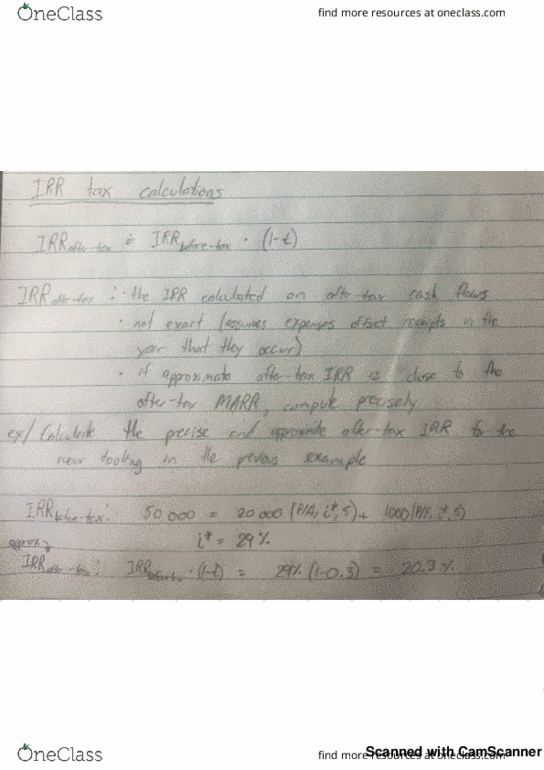 OneClass
find more resources at oneclass.com
IRR tax calculations
IRR after-tax ≐ IRR before-tax · (1-t)
IRR after-tax : · the IRR calculated on after-tax cash flows
· not exact (assumes expenses offset receipts in the
year that they occur)
· if approximate after-tax IRR is close to the
after-tax MARR, compute precisely
ex/ Calculate the precise and approximate after-tax IRR for the
new tooling in the pevous example
IRR before-tax : 50 000 = 20 000 (P/A, i*, 5) + 1000 (P/F, i*, 5)
i* = 29%
approx
IRR after-tax : IRR before-tax · (1-t) = 29% (1-0.3) = 20.3%
OneClass
find more resources at oneclass.com
Scanned with CamScanner